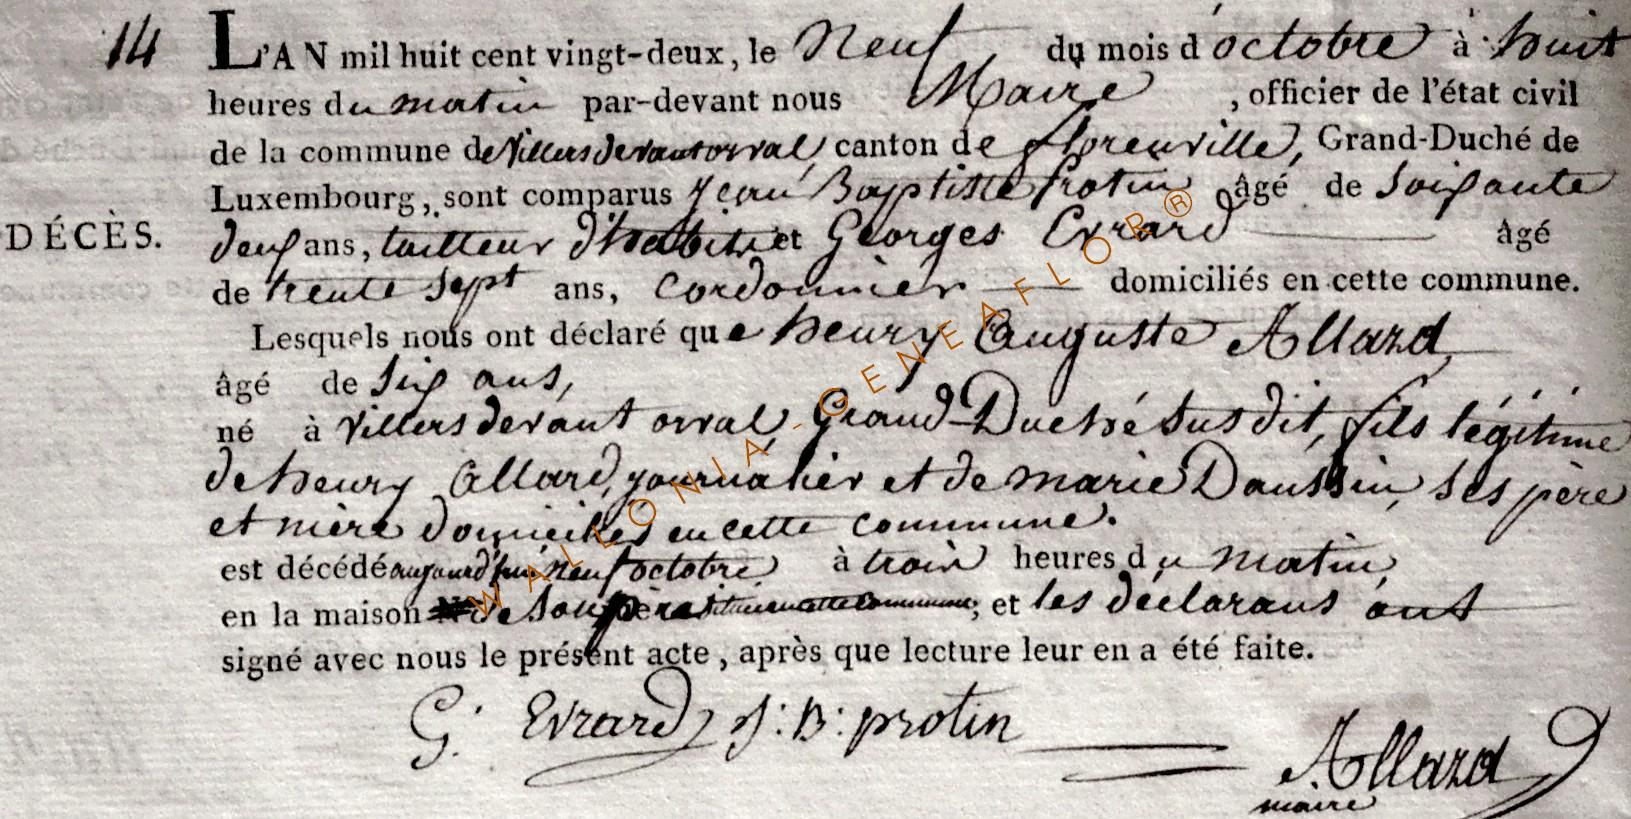 14 L'AN mil huit cent vingt-deux, le Neuf du mois d'octobre à huit
heures du matin par-devant nous Maire, officier de l'état civil
de la commune de Villers devant orval, canton de florenville, Grand-Duché de
Luxembourg, sont comparus Jean Baptiste Protin âgé de Soixante
DÉCÈS. deux ans, tailleur d'habits et Georges Evrard âgé
de trente Sept ans, Cordonnier domiciliés en cette commune.
Lesquels nous ont déclaré que henry Auguste Allard
âgé de Six ans,
né à Villers devant orval, Grand-Duché Susdit, fils légitime
de henry Allard, journalier et de marie Daussin, Ses père
et mère domiciliés en cette commune.
est décédé aujourd'hui neuf octobre à trois heures du matin,
en la maison de Son père située en cette commune; et les déclarans ont
signé avec nous le présent acte, après que lecture leur en a été faite.
G. Evrard J:B: protin
Allard
maire
WALLONIA-GENEAFLOR®